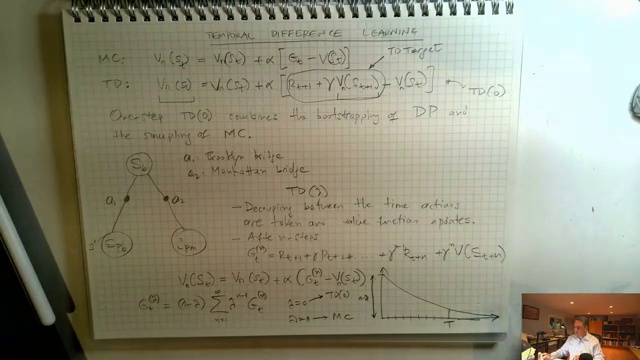 TEMPORAL DIFFERENCE LEARNING
MC: Vπ(St) = Vπ(St) + α [Gt - V(St)]
TD Target
TD: Vπ(St) = Vπ(St) + α [Rt+1 + γVπ(St+1) - Vπ(St)]
TD(0)
One-step TD(0) combines the bootstrapping of DP and
the sampling of MC.
St
a1: Brooklyn bridge
a2: Manhattan bridge
a1
a2
TD(λ)
- Decoupling between the time actions
are taken and value function updates.
- After n-steps
Gt(n) = Rt+1 + γRt+2 + ... + γ^n-1 Rt+n + γ^n V(St+n)
Vπ(St) = Vπ(St) + α (Gt(n) - V(St))
Gt(λ) = (1-λ) Σ n=1 ∞ λ^n-1 Gt(n)
λ=0 → TD(0)
λ=1 → MC
1-λ
T